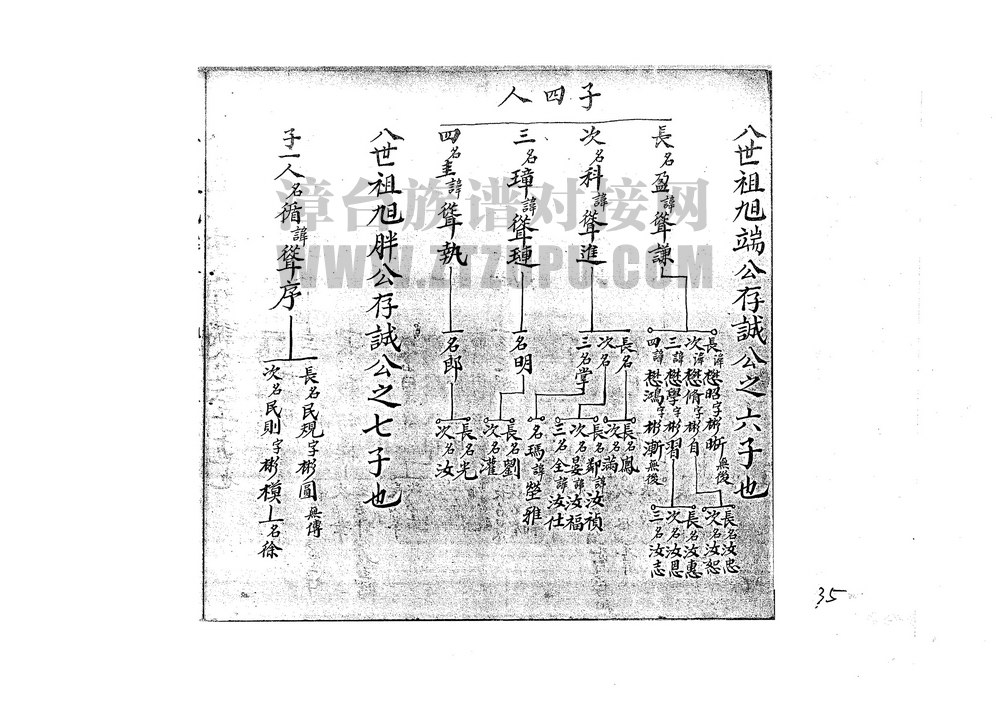 八世祖旭端公存誠公之六子也
子四人
長名盈諱聳謙
長諱懋昭字彬晰無後
次諱懋脩字彬自
三諱懋學字彬習
四諱懋鴻字彬漸無後
長名汝忠
次名汝恕
長名汝惠
次名汝恩
三名汝志
次名科諱聳進
長名
次名
三名掌
長名鳳
次名滿
長名鄰諱汝禎
次名晏諱汝福
三名全諱汝仕
名瑪諱瑩雅
三名璋諱聳璉
名明
長名劉
次名灌
四名圭諱聳執
名郎
長名光
次名汝
八世祖旭胖公存誠公之七子也
子一人名循諱聳序
長名民規字彬圓無傳
次名民則字彬模
名徐
漳台族谱对接网
WWW.ZTZUPU.COM
35